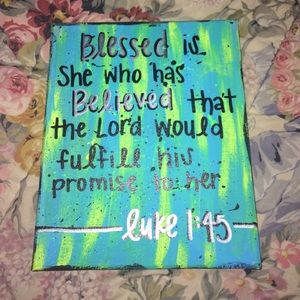 Blessed is
She who has
Believed that
the Lord would
fulfill his
promise to her.
luke 1:45